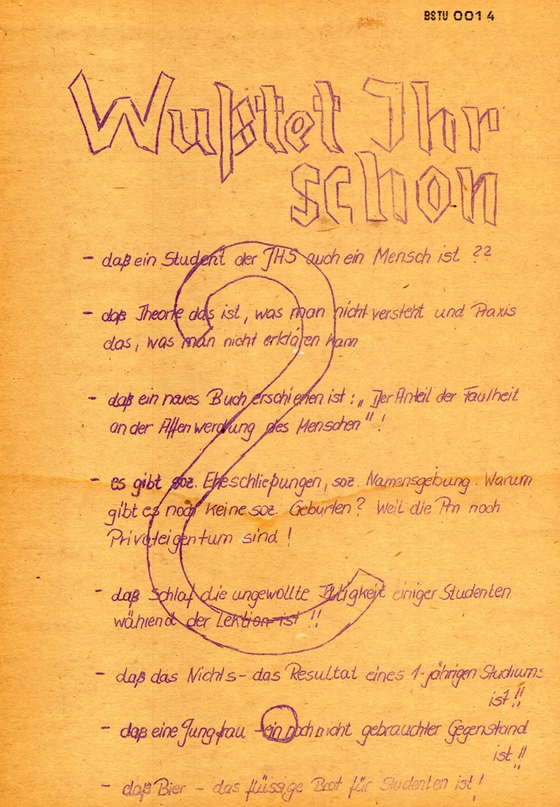 BSTU 0014
Wußtet Ihr
schon
- daß ein Student der JHS auch ein Mensch ist ??
- daß Theorie das ist, was man nicht versteht und Praxis
das, was man nicht erklären kann
- daß ein neues Buch erschienen ist: „Der Anteil der Faulheit
an der Affenwerdung des Menschen"!
- es gibt soz. Eheschließungen, soz. Namensgebung. Warum
gibt es noch keine soz. Geburten? Weil die noch
Privateigentum sind!
- daß Schlaf die ungewollte Tätigkeit einiger Studenten
während der Lektion ist !!
- daß das Nichts - das Resultat eines 1-jährigen Studiums
ist !!
- daß eine Jungfrau - ein noch nicht gebrauchter Gegenstand
ist !!
- daß Bier - das flüssige Brot für Studenten ist !